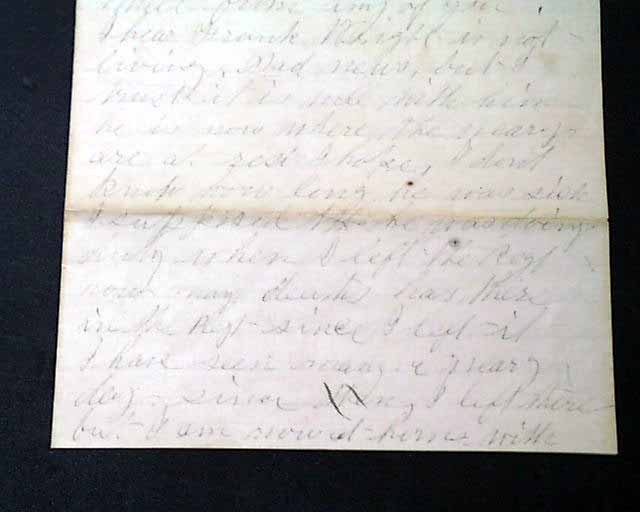 of you
I hear Frank Wright is not
living, Sad news, but I
trust it is well with him
he is now where the weary
are at rest I hope, I dont
know how long he was sick
I supposed that he was doing
when I left the Regt
how many deaths has there
in the Regt since I left it
I have seen many a
day since then, I left there
but I am now at home with